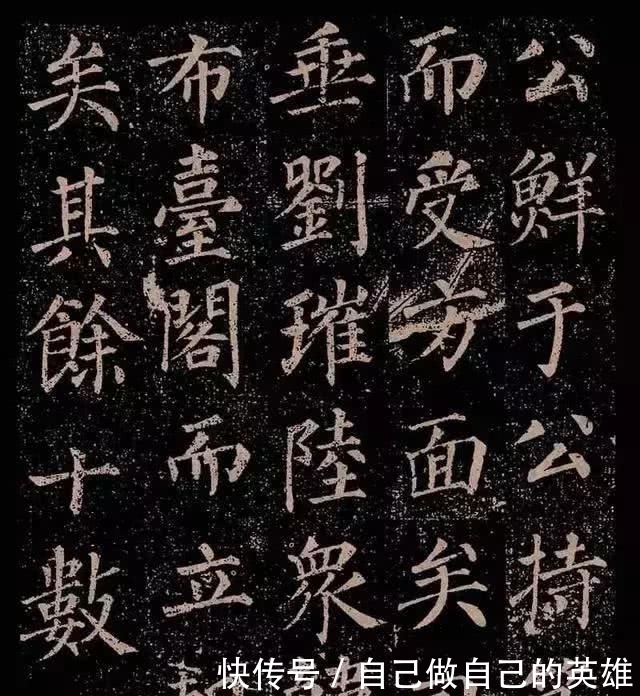 公鮮于公持
而受方面矣
垂劉璀陸衆
布臺閣而立
矣其餘十數
快传号 / 自己做自己的英雄